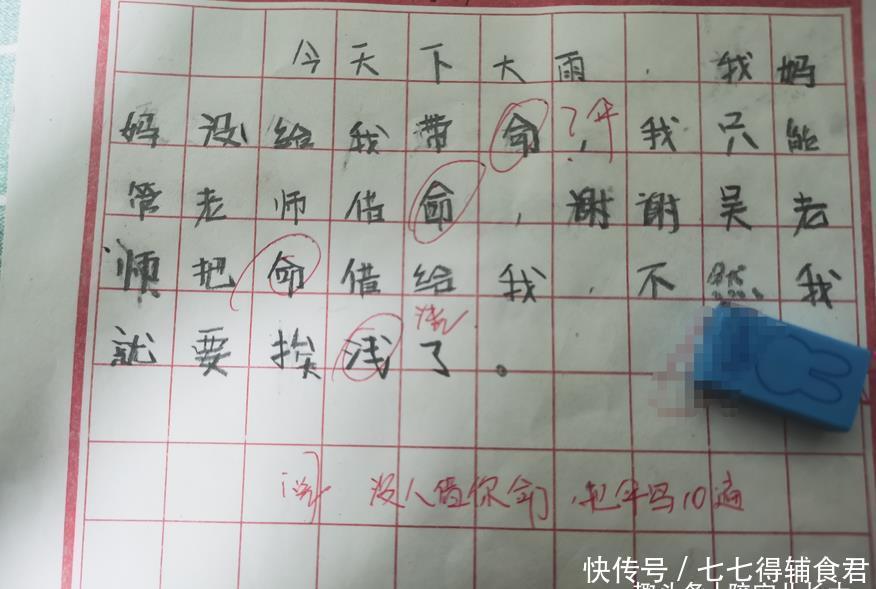 今天下大雨，我妈
妈没给我带命？伞，我只能
管老师借命，谢谢吴老
师把命借给我，不然我
就要挨浅了。
浇
没人借你命，把伞写10遍
快传号／七七得辅食君